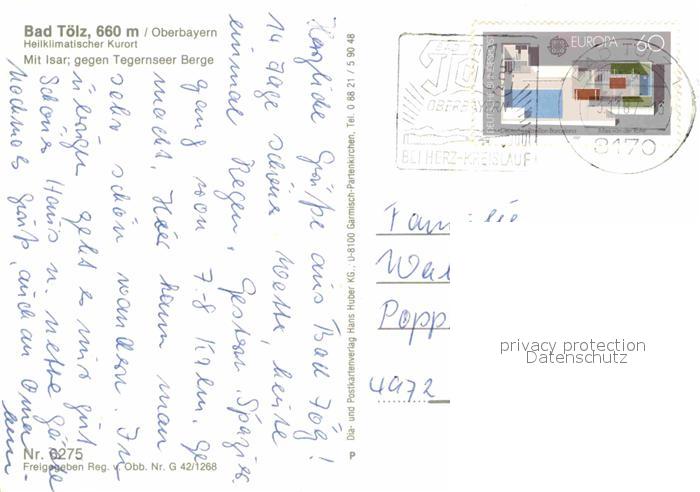 Bad Tölz, 660 m / Oberbayern
Heilklimatischer Kurort
Mit Isar; gegen Tegernseer Berge
Herzliche Grüße aus Bad Tölz!
14 Tage schönes Wetter, heute
einmal Regen. Gestern Spazier
gang von 7-8 Kilom. ge
macht. Hier kann man
sehr schön wandern. Im
übrigen geht es mir gut
Schönes Haus u. nette Gäste
Nochmals Gruß, auch an Oma
Nr. 6275
Freigegeben Reg. v. Obb. Nr. G 42/1268
Dia- und Postkartenverlag Hans Huber KG., U-8100 Garmisch-Partenkirchen, Tel. 0 88 21 / 5 90 48
P
OBERBAYERN
BEI HERZ-KREISLAUF
EUROPA 60
8170
Fam
Wal
Popp
4972
privacy protection
Datenschutz